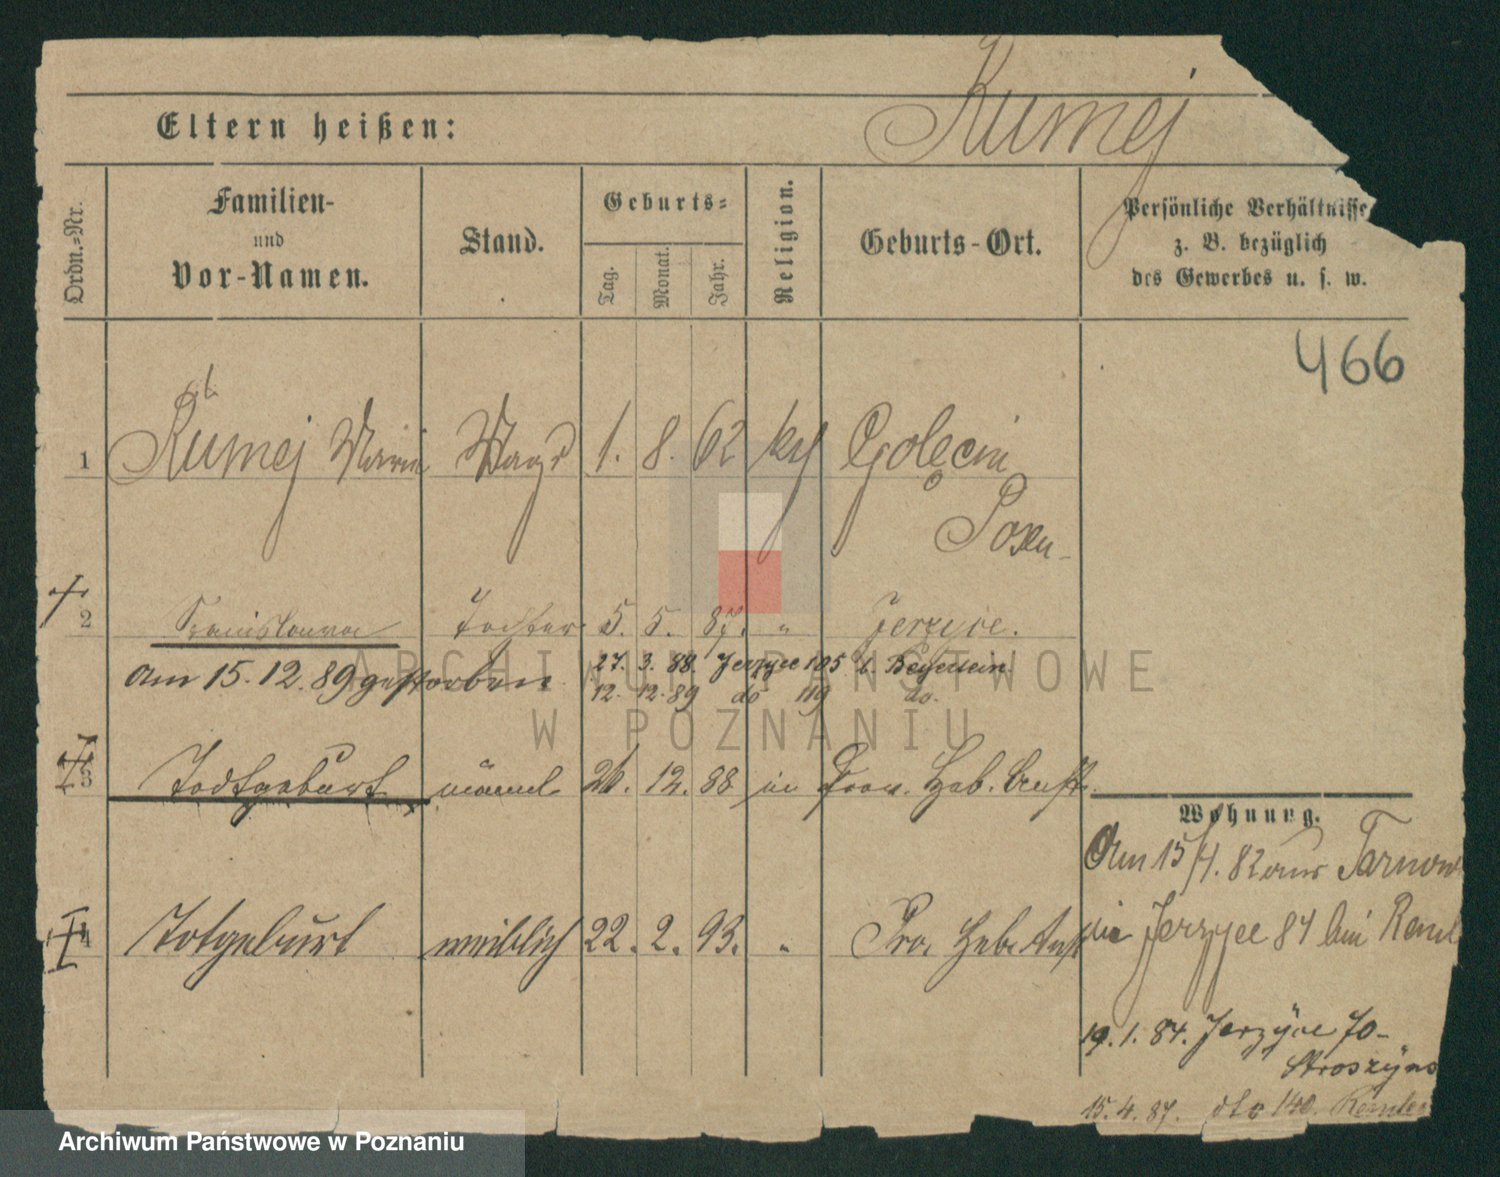 Kumej
Eltern heißen:
Ordn.-Nr.
Familien-
und
Vor-Namen.
Stand.
Geburts-
Tag.
Monat.
Jahr.
Religion.
Geburts-Ort.
Persönliche Verhältnisse
z. B. bezüglich
des Gewerbes u. s. w.
466
1 Kumej Maria Magd 1. 8. 62 kth Golęcin
Posen
2 Stanislawa Tochter 5. 5. 87. " Jerzyce.
Am 15.12.89 gestorben
27. 3. 88 Jerzyce 105 b. Beyerlein
12. 12. 89 do 119 do.
3 Todtgeburt männl. 26. 12. 88 in Prov. Heb. Anst.
4 Totgeburt weiblich 22. 2. 93. " Pro. Heb. Anst
Wohnung.
Am 15/4. 82 aus Tarnow
in Jerzyce 84 bei
19. 1. 84. Jerzyce 70
15. 4. 87. dto 140.
ARCHIWUM PAŃSTWOWE
W POZNANIU
Archiwum Państwowe w Poznaniu